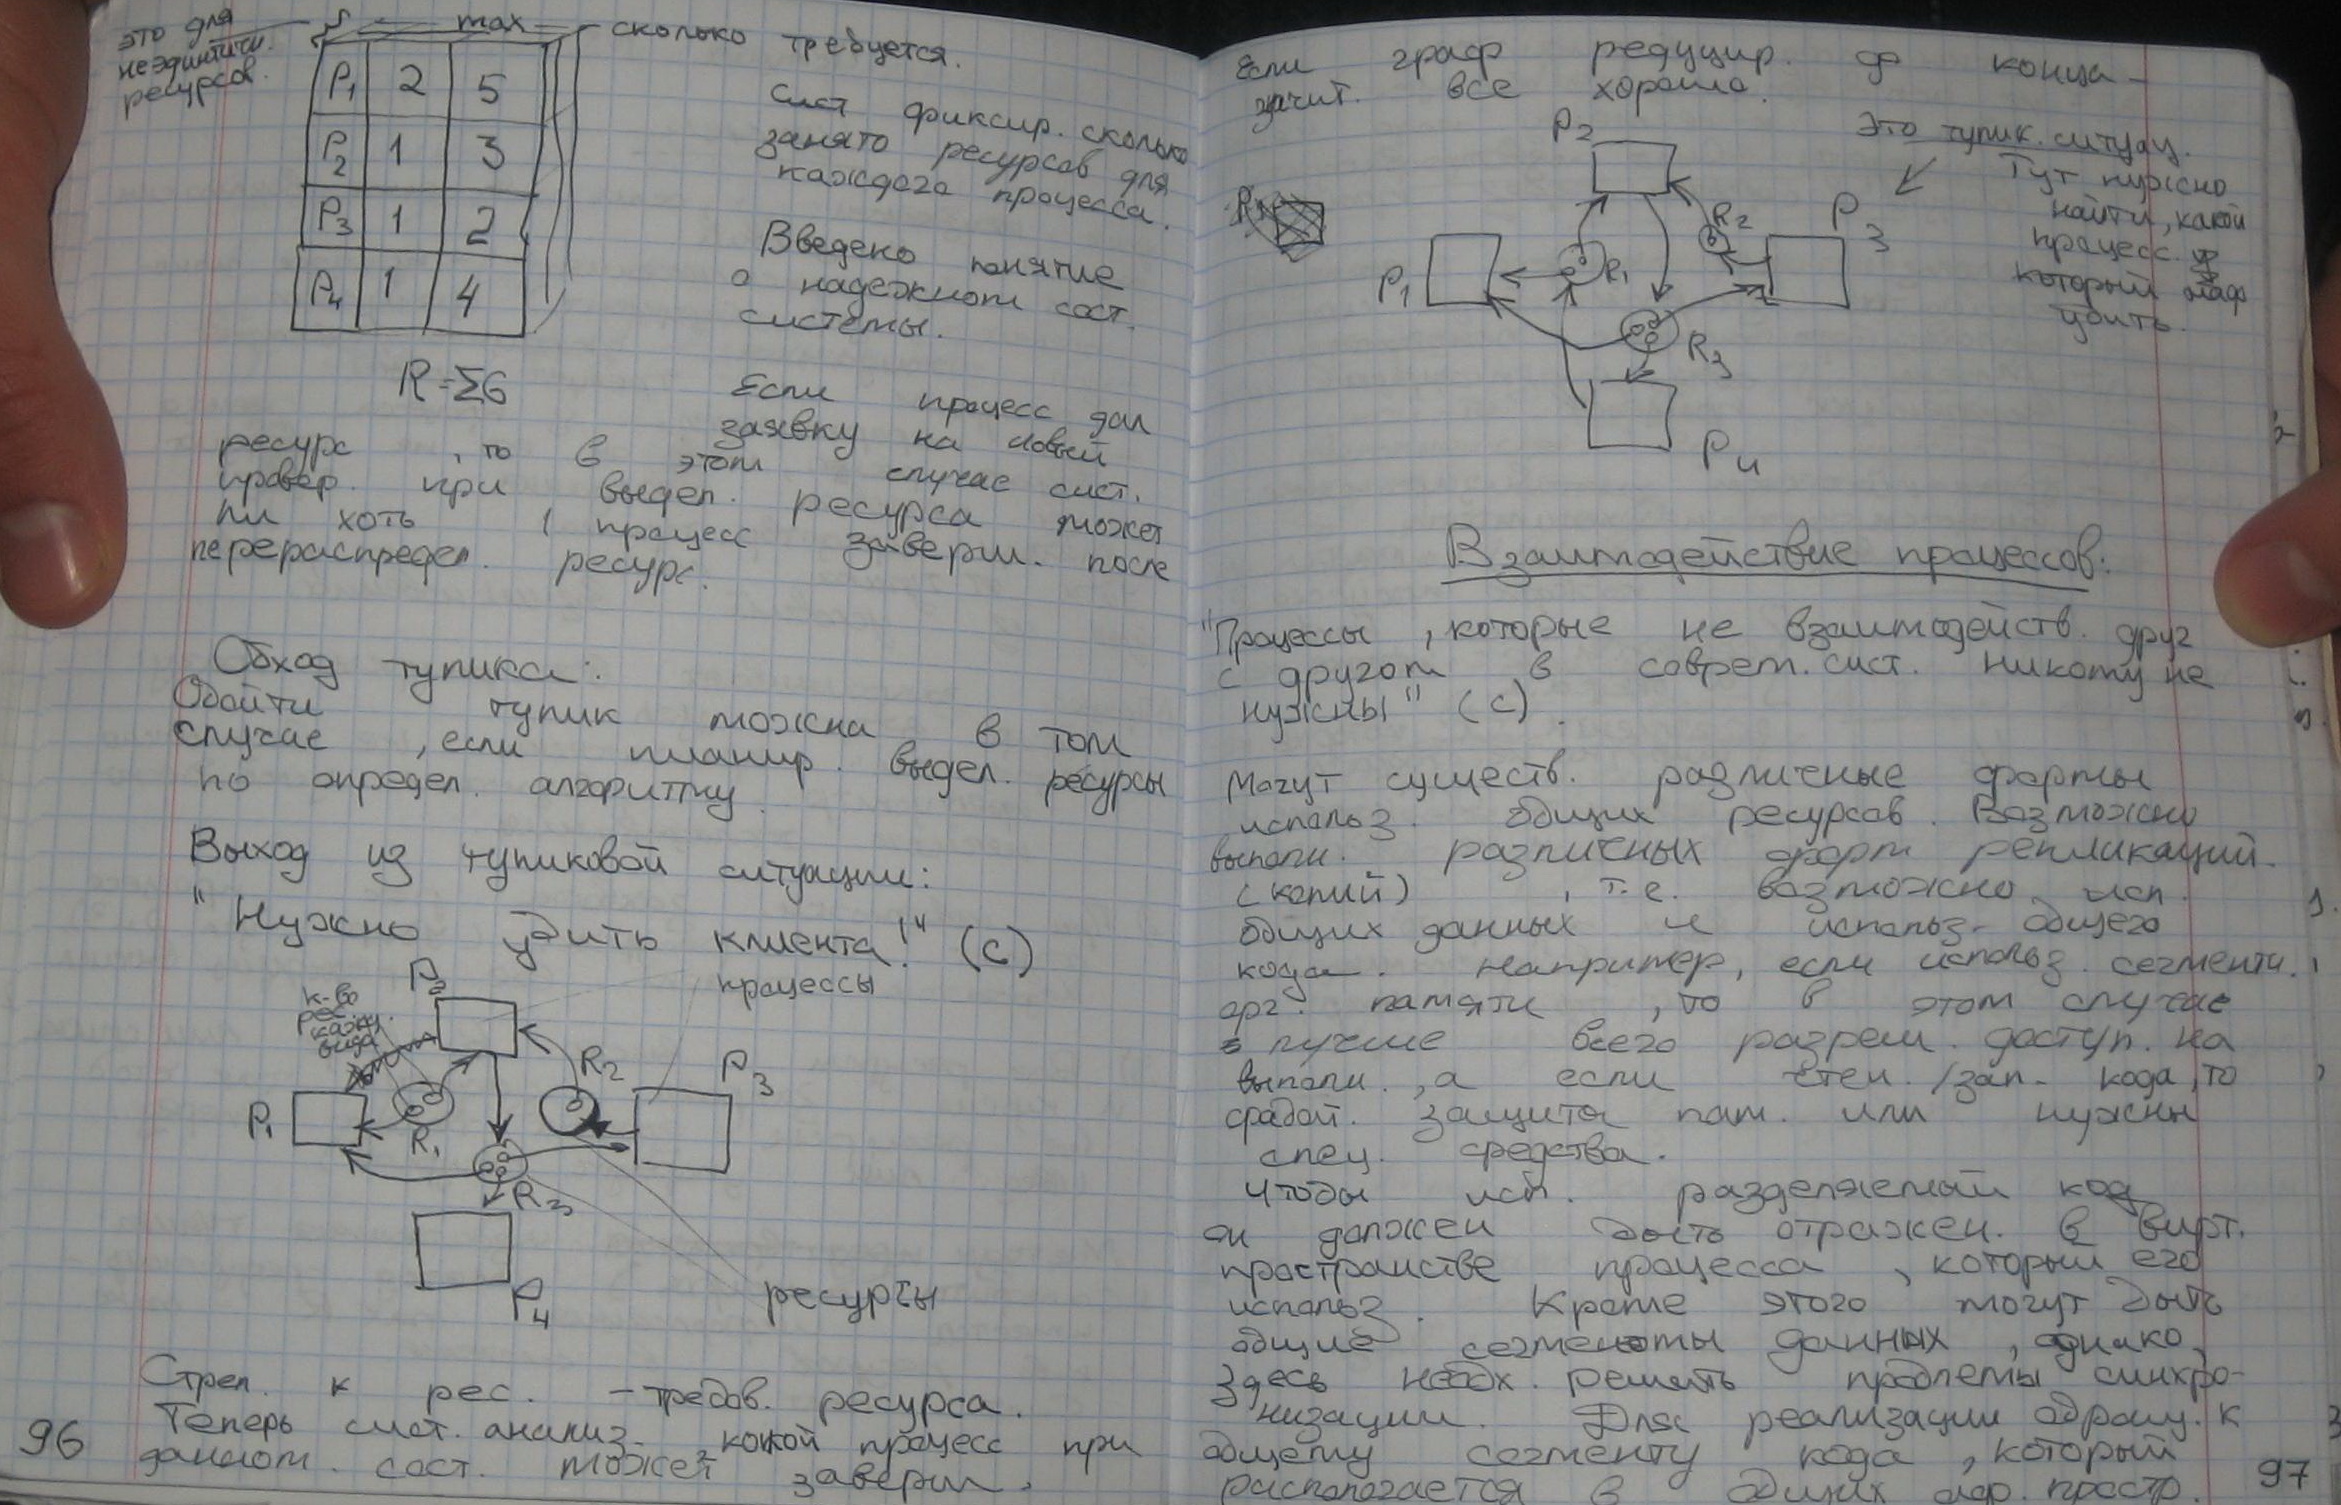 это для
неэдинтичн.
ресурсов.
max
сколько требуется.
P1 2 5
P2 1 3
P3 1 2
P4 1 4
Сист фиксир. сколько
занято ресурсов для
каждого процесса.
Введено понятие
о надежном сост.
системы.
R=Σ6
Если процесс дал
заявку на новый
ресурс, то в этом случае сист.
провер. при выдел. ресурса может
ли хоть 1 процесс заверш. после
перераспредел. ресурс.
Обход тупика:
Обойти тупик можна в том
случае, если планир. выдел. ресурсы
по определ. алгоритму.
Выход из тупиковой ситуации:
"Нужно убить клиента!" (с)
процессы
к-во
рес.
кажд.
вида
P2
P1
R1
R2
P3
R3
P4
ресурсы
Стрел. к рес. - требов. ресурса.
Теперь сист. анализ. какой процесс при
данном. сост. может заверш.
96
Если граф редуцир. до конца -
значит. все хорошо.
Это тупик. ситуац.
Тут нужно
найти, какой
процесс
который надо
убить.
P2
R2
P3
P1
R1
R3
P4
Взаимодействие процессов:
"Процессы, которые не взаимодейств. друг
с другом в соврем. сист. никому не
нужны" (с).
Могут существ. различные формы
использ. общих ресурсов. Возможно
выполн. различных форм репликаций
(копий), т.е. возможно исп.
общих данных и использ. общего
кода. Например, если использ. сегментн.
орг. памяти, то в этом случае
лучше всего разреш. доступ. на
выполн., а если чтен./зап. кода, то
сработ. защита пам. или нужны
спец. средства.
Чтобы исп. разделяемый код
он должен быть отражен. в вирт.
пространстве процесса, который его
использ. Кроме этого могут быть
общие сегменты данных, однако
здесь необх. решать проблемы синхро-
низации. Для реализации обращ. к
общему сегменту кода, который
располагается в общих адр. простр.
97